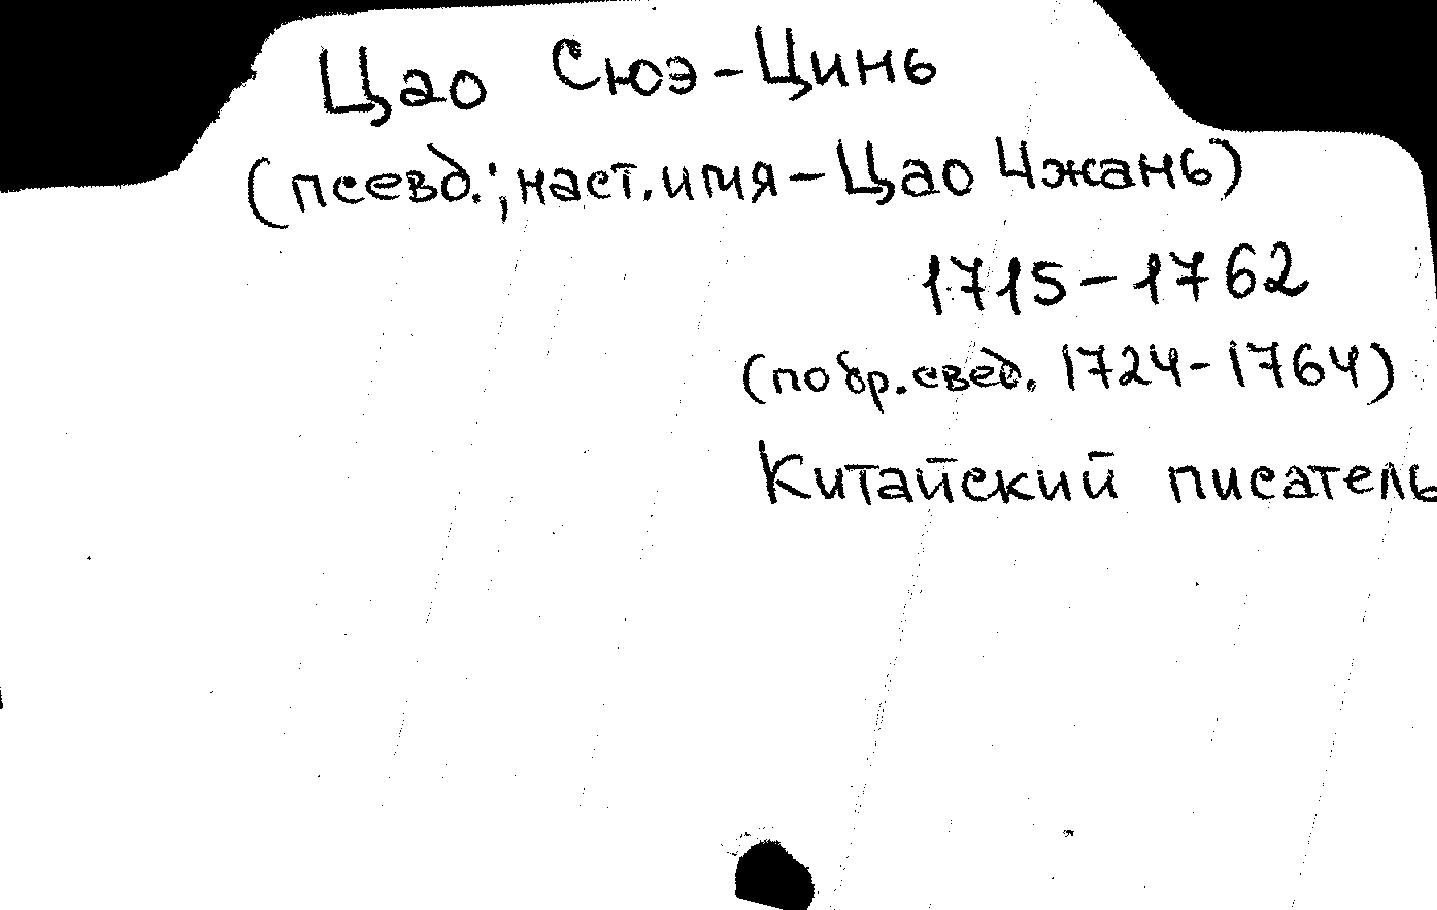 Цао Сюэ-Цинь
(псевд.; наст. имя - Цао Чжань)
1715-1762
(по др. свед. 1724-1764)
Китайский писатель